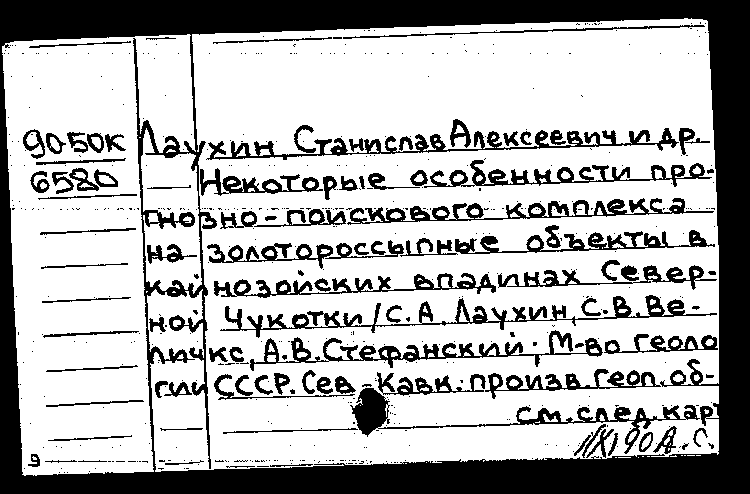 90-50К Лаухин, Станислав Алексеевич и др.
6580 Некоторые особенности про-
гнозно-поискового комплекса
на золотороссыпные объекты в
кайнозойских впадинах Север-
ной Чукотки / С.А. Лаухин, С.В. Ве-
личкс, А.В. Стефанский; М-во геоло
гии СССР. Сев.-Кавк. произв. геол. об-
см. след. кар
А.С.
9